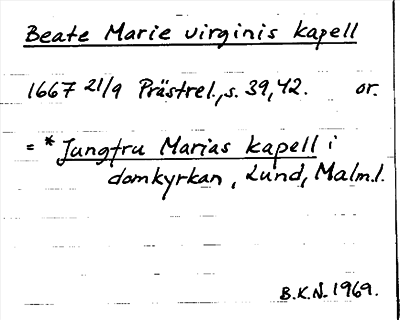 Beate Marie virginis kapell
1667 21/9 Prästrel., s. 39, 42. or.
= * Jungfru Marias kapell i
domkyrkan, Lund, Malm.l.
B.K.N. 1969.